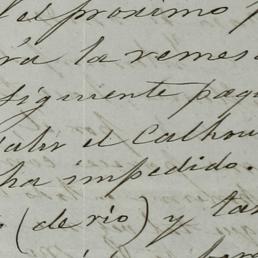 el proximo
la remes
siguiente paq
salir el Calhou
ha impedido.
(de rio) y ta